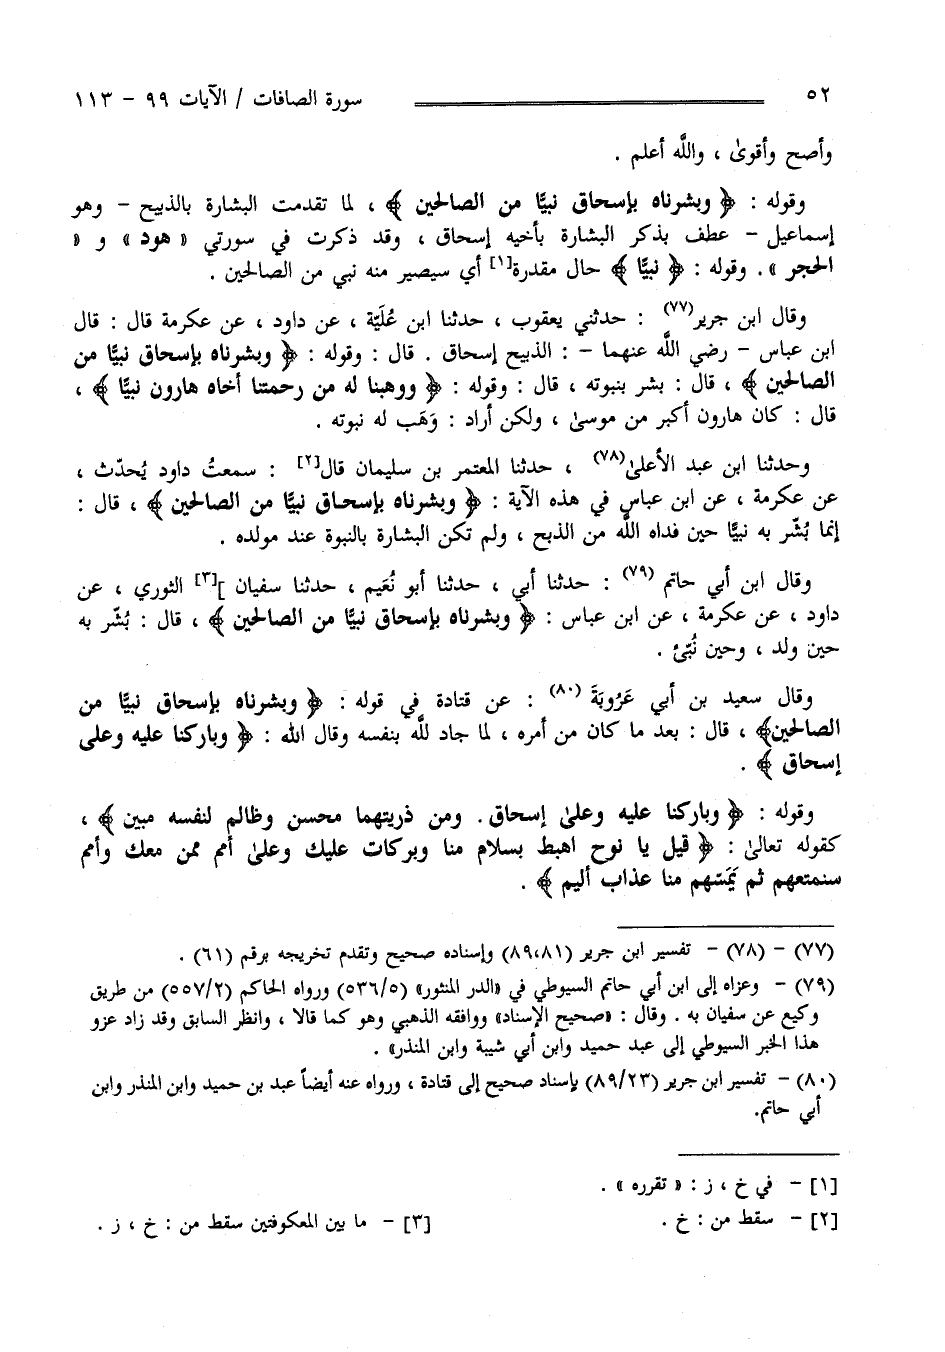 ٥٢ سورة الصافات / الآيات ٩٩ - ١١٣
وأصح وأقوىٰ ، واللَّه أعلم .
وقوله : ﴿ وبشرناه بإسحاق نبيًّا من الصالحين ﴾ ، لما تقدمت البشارة بالذبيح - وهو
إسماعيل - عطف بذكر البشارة بأخيه إسحاق ، وقد ذكرت في سورتي « هود » و «
الحجر » . وقوله : ﴿ نبيًّا ﴾ حال مقدرة[١] أي سيصير منه نبي من الصالحين .
وقال ابن جرير(٧٧) : حدثني يعقوب ، حدثنا ابن عُلَيّة ، عن داود ، عن عكرمة قال : قال
ابن عباس - رضي اللَّه عنهما - : الذبيح إسحاق . قال : وقوله : ﴿ وبشرناه بإسحاق نبيًّا من
الصالحين ﴾ ، قال : بشر بنبوته ، قال : وقوله : ﴿ ووهبنا له من رحمتنا أخاه هارون نبيًّا ﴾ ،
قال : كان هارون أكبر من موسىٰ ، ولكن أراد : وَهَب له نبوته .
وحدثنا ابن عبد الأعلىٰ(٧٨) ، حدثنا المعتمر بن سليمان قال[٢] : سمعتُ داود يُحدّث ،
عن عكرمة ، عن ابن عباس في هذه الآية : ﴿ وبشرناه بإسحـاق نبيًّا من الصالحين ﴾ ، قال :
إنما بُشّر به نبيًّا حين فداه اللَّه من الذبح ، ولم تكن البشارة بالنبوة عند مولده .
وقال ابن أبي حاتم (٧٩) : حدثنا أبي ، حدثنا أبو نُعَيم ، حدثنا سفيان ][٣] الثوري ، عن
داود ، عن عكرمة ، عن ابن عباس : ﴿ وبشرناه بإسحاق نبيًّا من الصالحين ﴾ ، قال : بُشّر به
حين ولد ، وحين نُبّئ .
وقال سعيد بن أبي عَرُوبَةَ (٨٠) : عن قتادة في قوله : ﴿ وبشرناه بإسحاق نبيًّا من
الصالحين﴾ ، قال : بعد ما كان من أمره ، لما جاد للَّه بنفسه وقال الله : ﴿ وباركنا عليه وعلى
إسحاق ﴾ .
وقوله : ﴿ وباركنا عليه وعلىٰ إسحاق . ومن ذريتهما محسن وظالم لنفسه مبين ﴾ ،
كقوله تعالىٰ : ﴿ قيل يا نوح اهبط بسلام منا وبركات عليك وعلىٰ أمم ممن معك وأمم
سنمتعهم ثم يَمَسّهم منا عذاب أليم ﴾ .
(٧٧) - (٧٨) - تفسير ابن جرير (٨٩،٨١) وإسناده صحيح وتقدم تخريجه برقم (٦١) .
(٧٩) - وعزاه إلى ابن أبي حاتم السيوطي في «الدر المنثور» (٥٣٦/٥) ورواه الحاكم (٥٥٧/٢) من طريق
وكيع عن سفيان به . وقال : «صحيح الإسناد» ووافقه الذهبي وهو كما قالا ، وانظر السابق وقد زاد عزو
هذا الخبر السيوطي إلى عبد حميد وابن أبي شيبة وابن المنذر» .
(٨٠) - تفسير ابن جرير (٨٩/٢٣) بإسناد صحيح إلى قتادة ، ورواه عنه أيضاً عبد بن حميد وابن المنذر وابن
أبي حاتم.
[١] - في خ ، ز : « تقرره » .
[٢] - سقط من : خ . [٣] - ما بين المعكوفتين سقط من : خ ، ز .